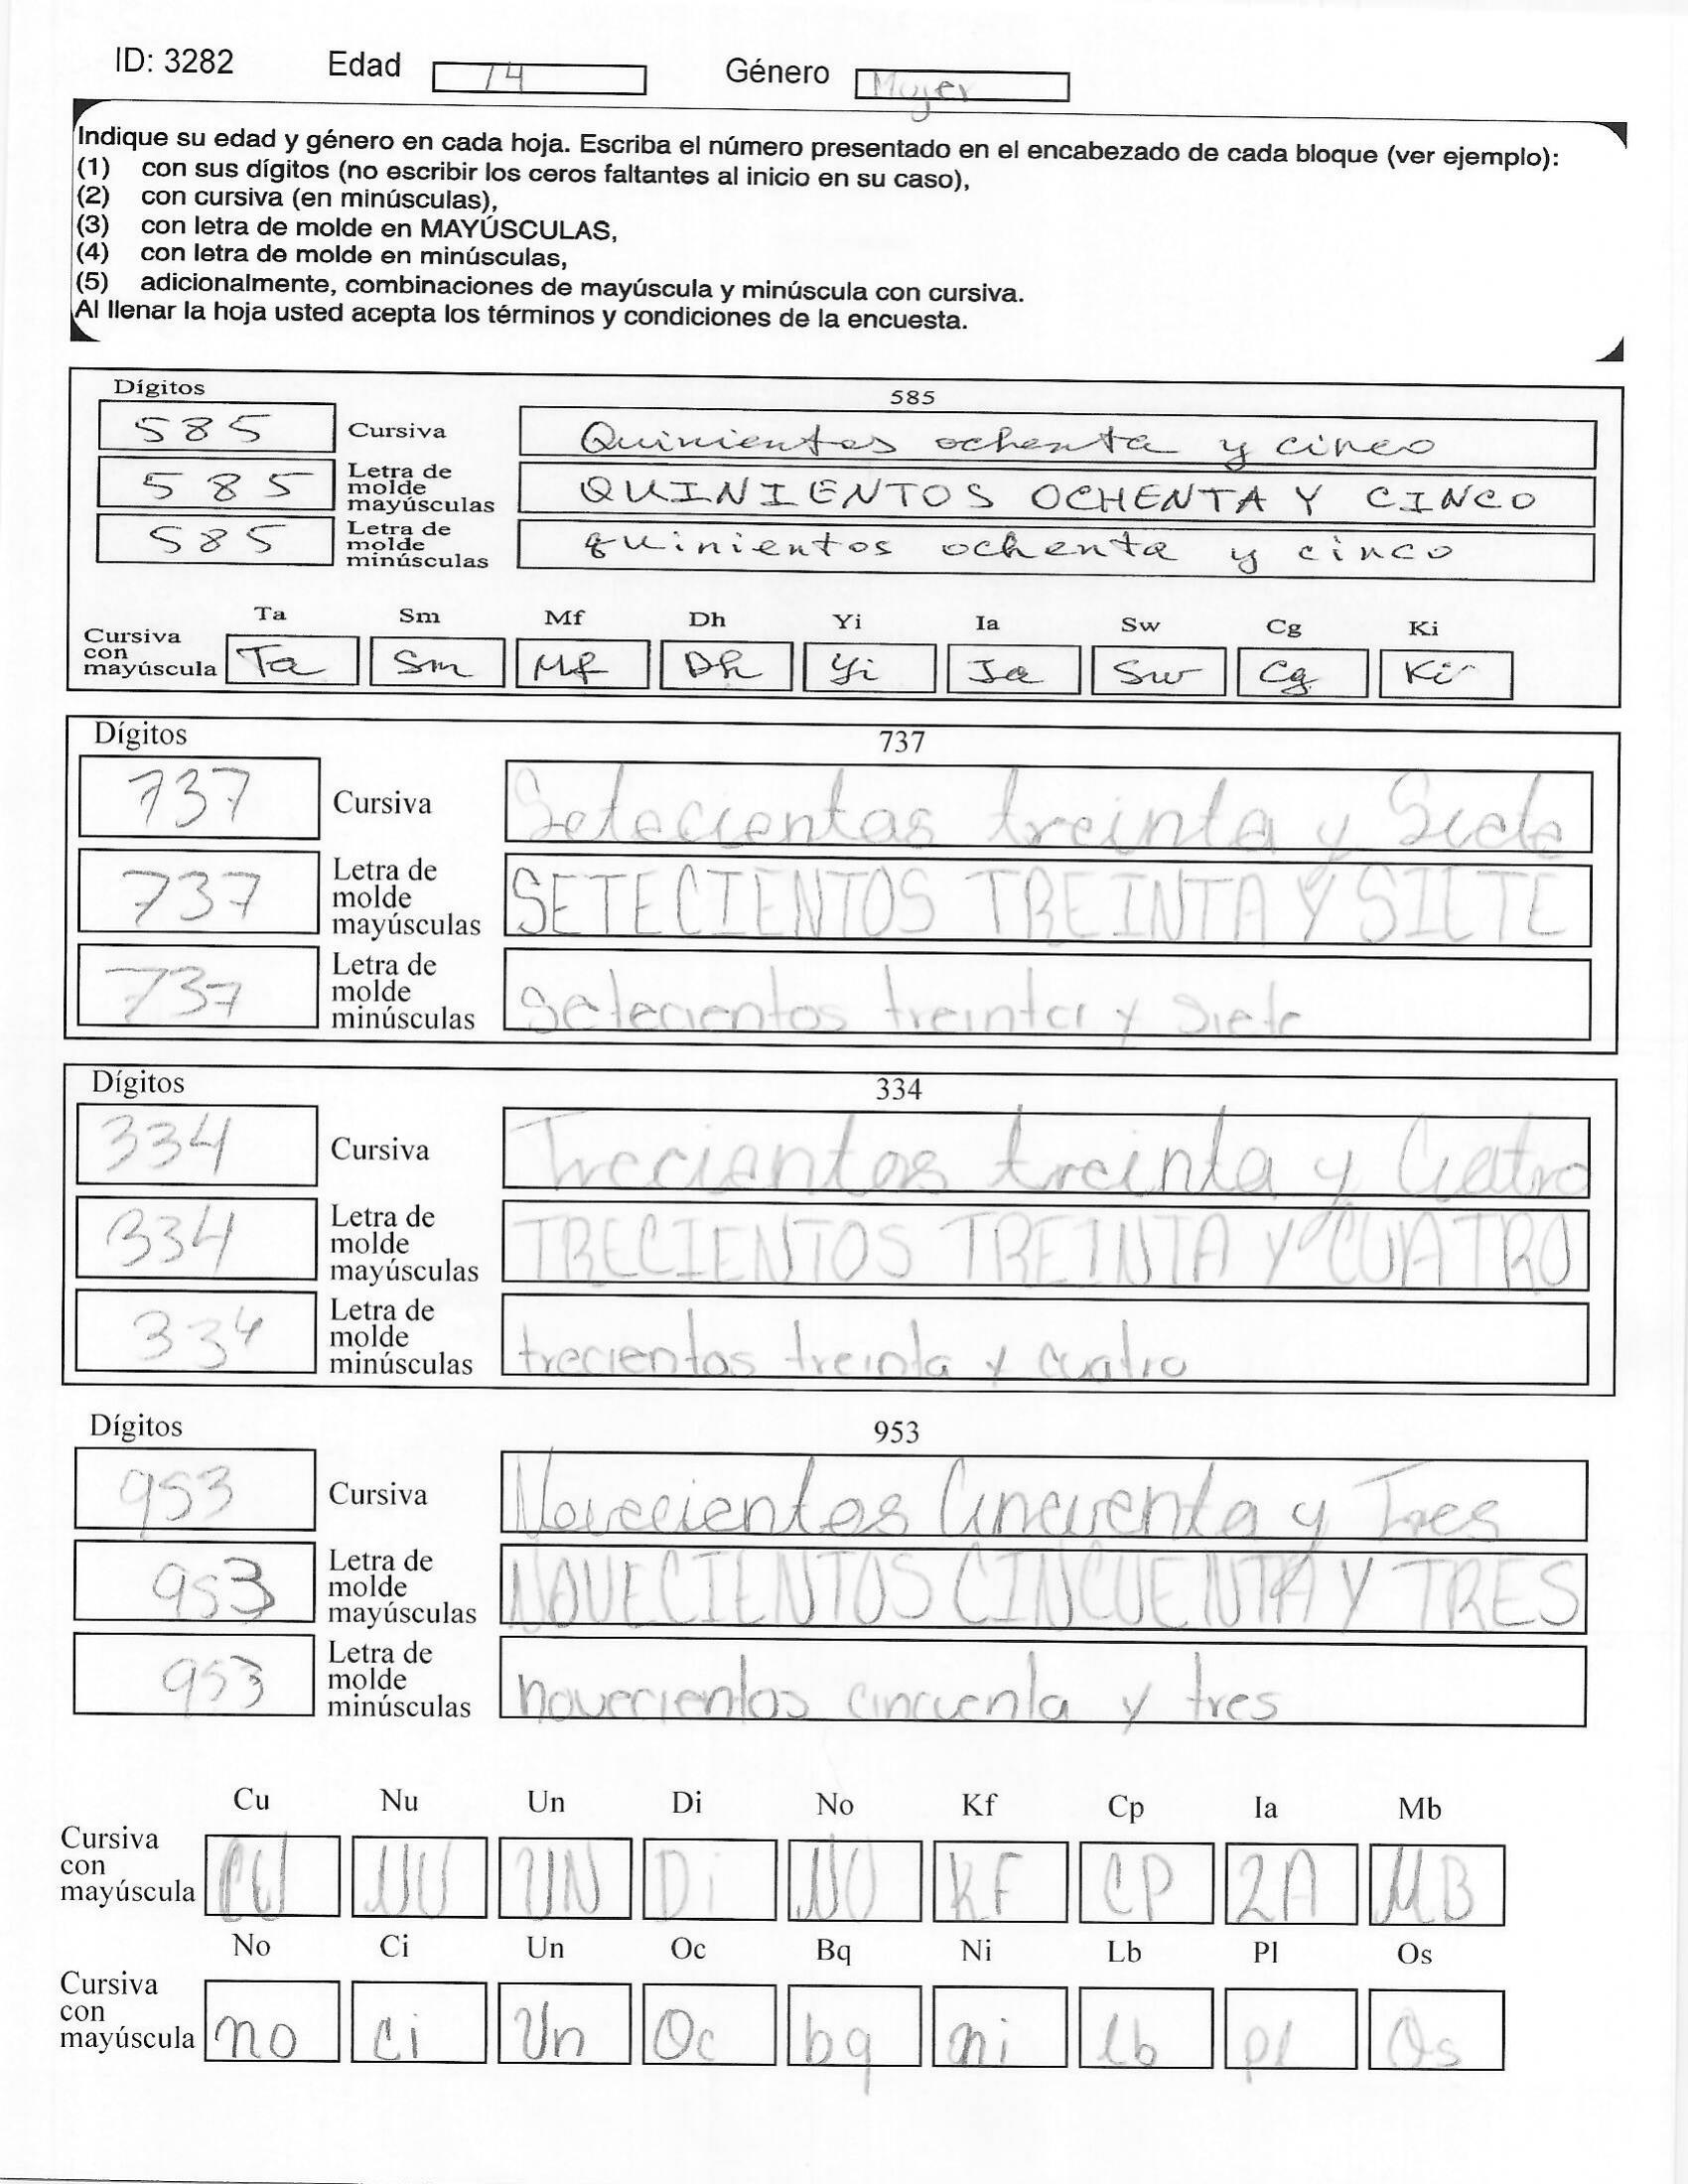 ID: 3282 Edad 14 Género Mujer
Indique su edad y género en cada hoja. Escriba el número presentado en el encabezado de cada bloque (ver ejemplo):
(1) con sus dígitos (no escribir los ceros faltantes al inicio en su caso),
(2) con cursiva (en minúsculas),
(3) con letra de molde en MAYÚSCULAS,
(4) con letra de molde en minúsculas,
(5) adicionalmente, combinaciones de mayúscula y minúscula con cursiva.
Al llenar la hoja usted acepta los términos y condiciones de la encuesta.
Dígitos 585
585 Cursiva Quinientos ochenta y cinco
585 Letra de molde mayúsculas QUINIENTOS OCHENTA Y CINCO
585 Letra de molde minúsculas quinientos ochenta y cinco
Ta Sm Mf Dh Yi Ia Sw Cg Ki
Cursiva con mayúscula Ta Sm Mf Dh Yi Ia Sw Cg Ki
Dígitos 737
737 Cursiva Setecientos treinta y Siete
737 Letra de molde mayúsculas SETECIENTOS TREINTA Y SIETE
737 Letra de molde minúsculas setecientos treinta y siete
Dígitos 334
334 Cursiva Trecientos treinta y Cuatro
334 Letra de molde mayúsculas TRECIENTOS TREINTA Y CUATRO
334 Letra de molde minúsculas trecientos treinta y cuatro
Dígitos 953
953 Cursiva Novecientos Cincuenta y Tres
953 Letra de molde mayúsculas NOVECIENTOS CINCUENTA Y TRES
953 Letra de molde minúsculas novecientos cincuenta y tres
Cu Nu Un Di No Kf Cp Ia Mb
Cursiva con mayúscula CU NU UN Di NO KF CP IA MB
No Ci Un Oc Bq Ni Lb Pl Os
Cursiva con mayúscula no Ci Un Oc bq ni lb pl Os